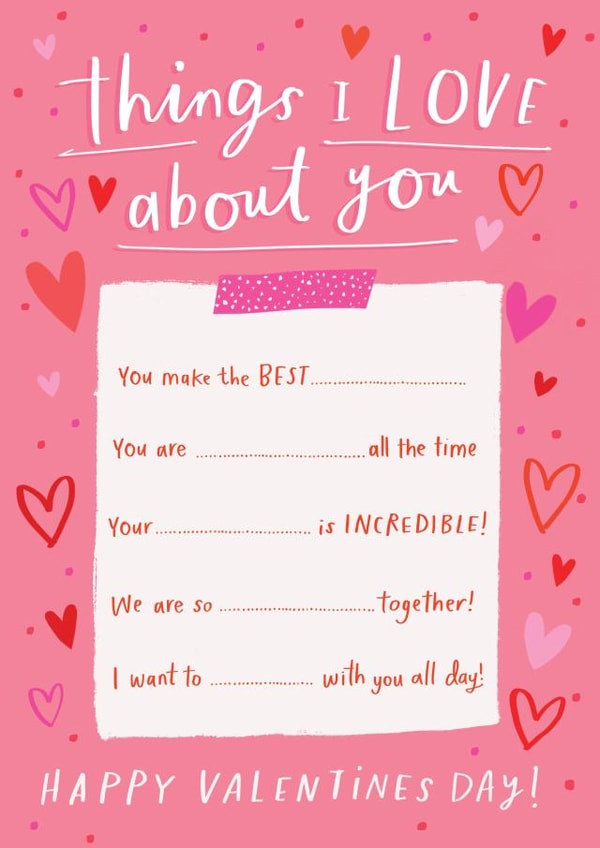 things I LOVE
about you
You make the BEST..............................
You are .............................. all the time
Your.............................. is INCREDIBLE!
We are so .............................. together!
I want to .................... with you all day!
HAPPY VALENTINES DAY!